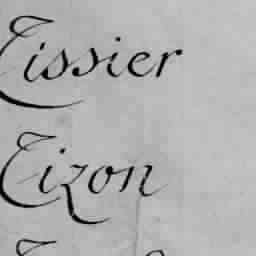 Tissier
Tizon